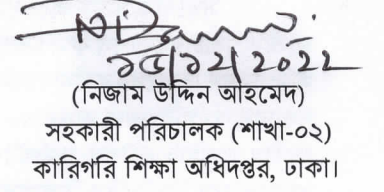 ১৫/১২/২০২২
(নিজাম উদ্দিন আহমেদ)
সহকারী পরিচালক (শাখা-০২)
কারিগরি শিক্ষা অধিদপ্তর, ঢাকা।